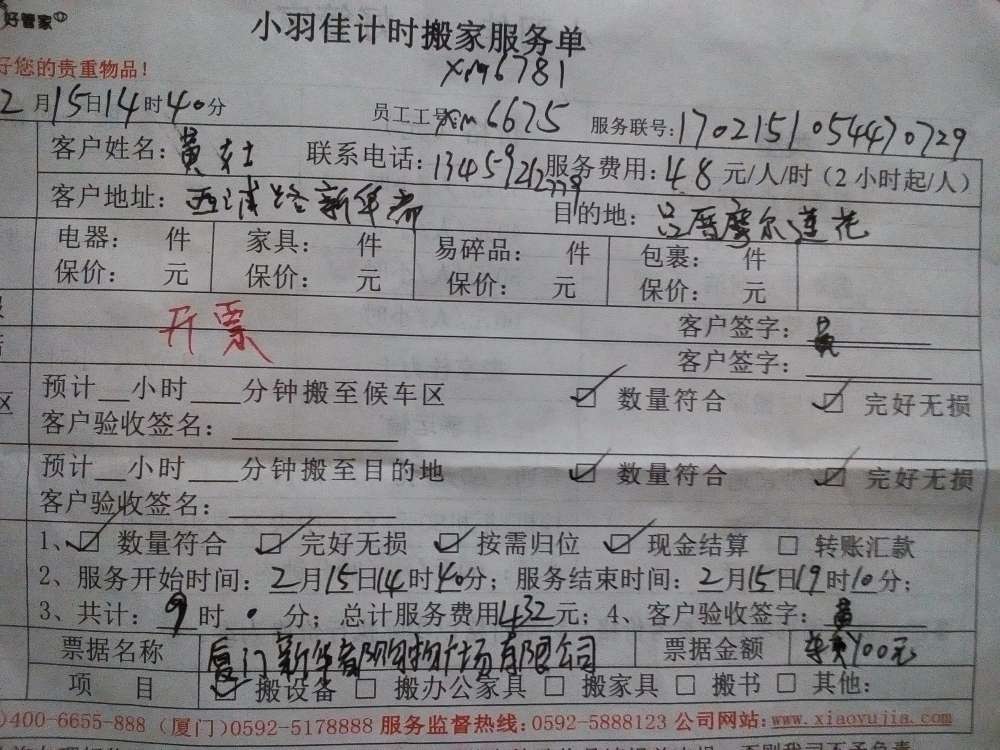 好管家
小羽佳计时搬家服务单
xm6781
好您的贵重物品！
2月15日14时40分 员工工号:xm6675 服务联号:1702151054470729
客户姓名:黄女士 联系电话:13459212779 服务费用:48元/人/时（2小时起/人）
客户地址:西堤路新华都 目的地:吕厝摩尔莲花
电器: 件 家具: 件 易碎品: 件 包裹: 件
保价: 元 保价: 元 保价: 元 保价: 元
开票 客户签字:黄
客户签字:
区 预计__小时___分钟搬至候车区 ☑ 数量符合 ☑ 完好无损
客户验收签名:
预计__小时___分钟搬至目的地 ☑ 数量符合 ☑ 完好无损
客户验收签名:
1、☑ 数量符合 ☑ 完好无损 ☑ 按需归位 ☑ 现金结算 □ 转账汇款
2、服务开始时间:2月15日14时40分；服务结束时间:2月15日19时10分；
3、共计:9时·分；总计服务费用432元；4、客户验收签字:黄
票据名称 厦门新华都购物广场有限公司 票据金额 车费100元
项 目 ☑ 搬设备 □ 搬办公家具 □ 搬家具 □ 搬书 □ 其他:
)400-6655-888（厦门）0592-5178888 服务监督热线:0592-5888123 公司网站:www.xiaoyujia.com